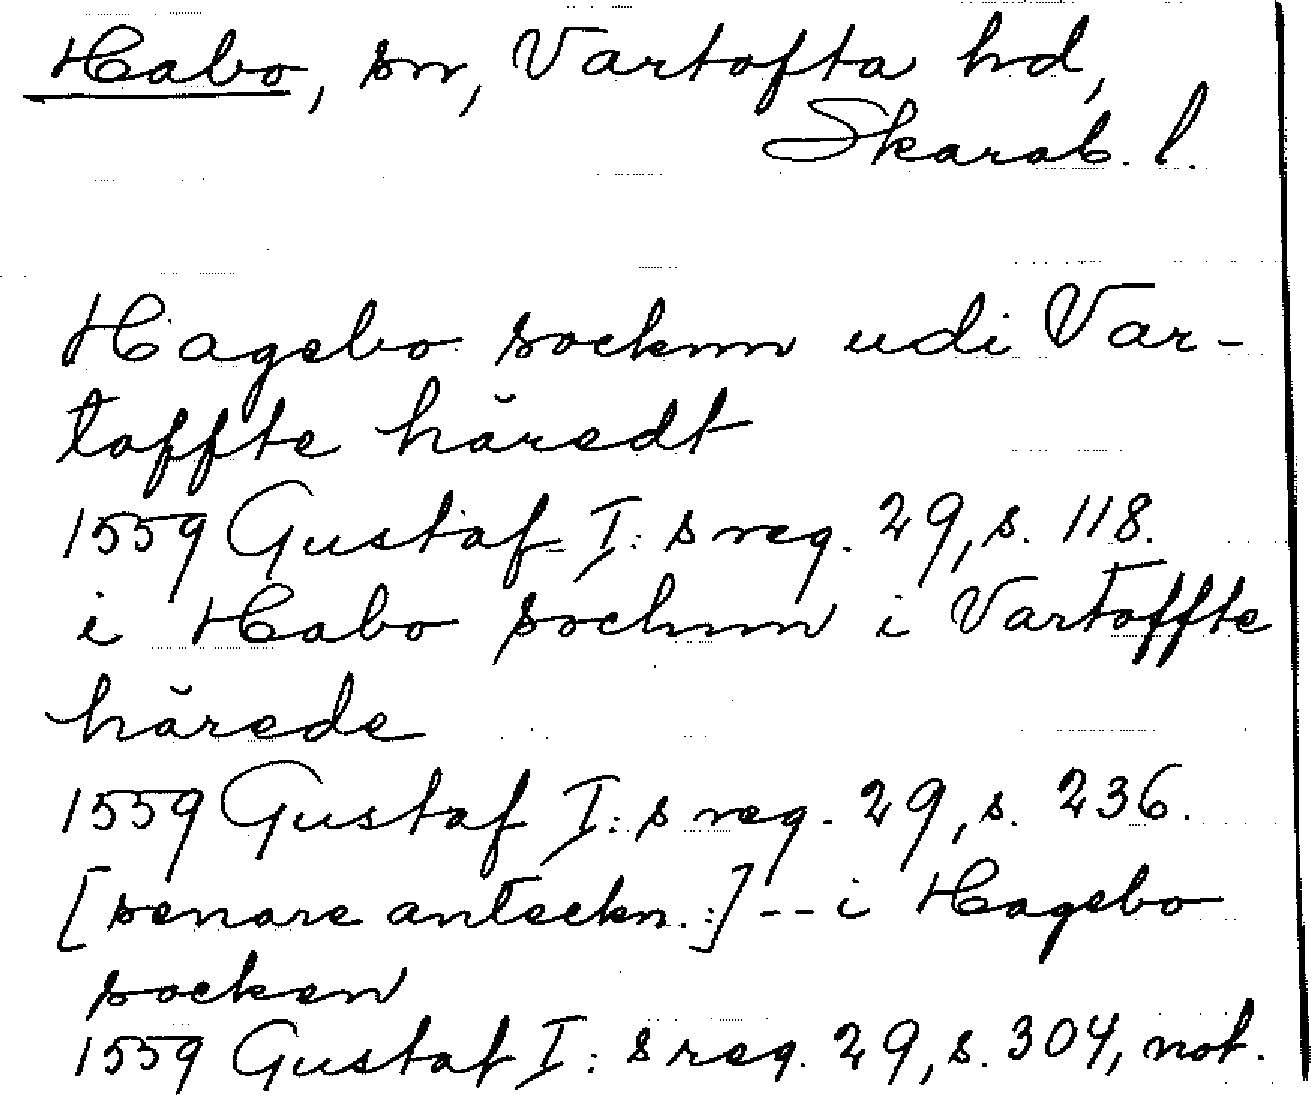 Habo, sn, Vartofta hd,
Skarab. l.
Hagebo socknn udi Var-
toffte häredt
1559 Gustaf I: s reg. 29, s. 118.
i Habo sochnn i Vartoffte
härede
1559 Gustaf I: s reg. 29, s. 236.
[senare anteckn.:] -- i Hagebo
socken
1559 Gustaf I: s reg. 29, s. 304, not.